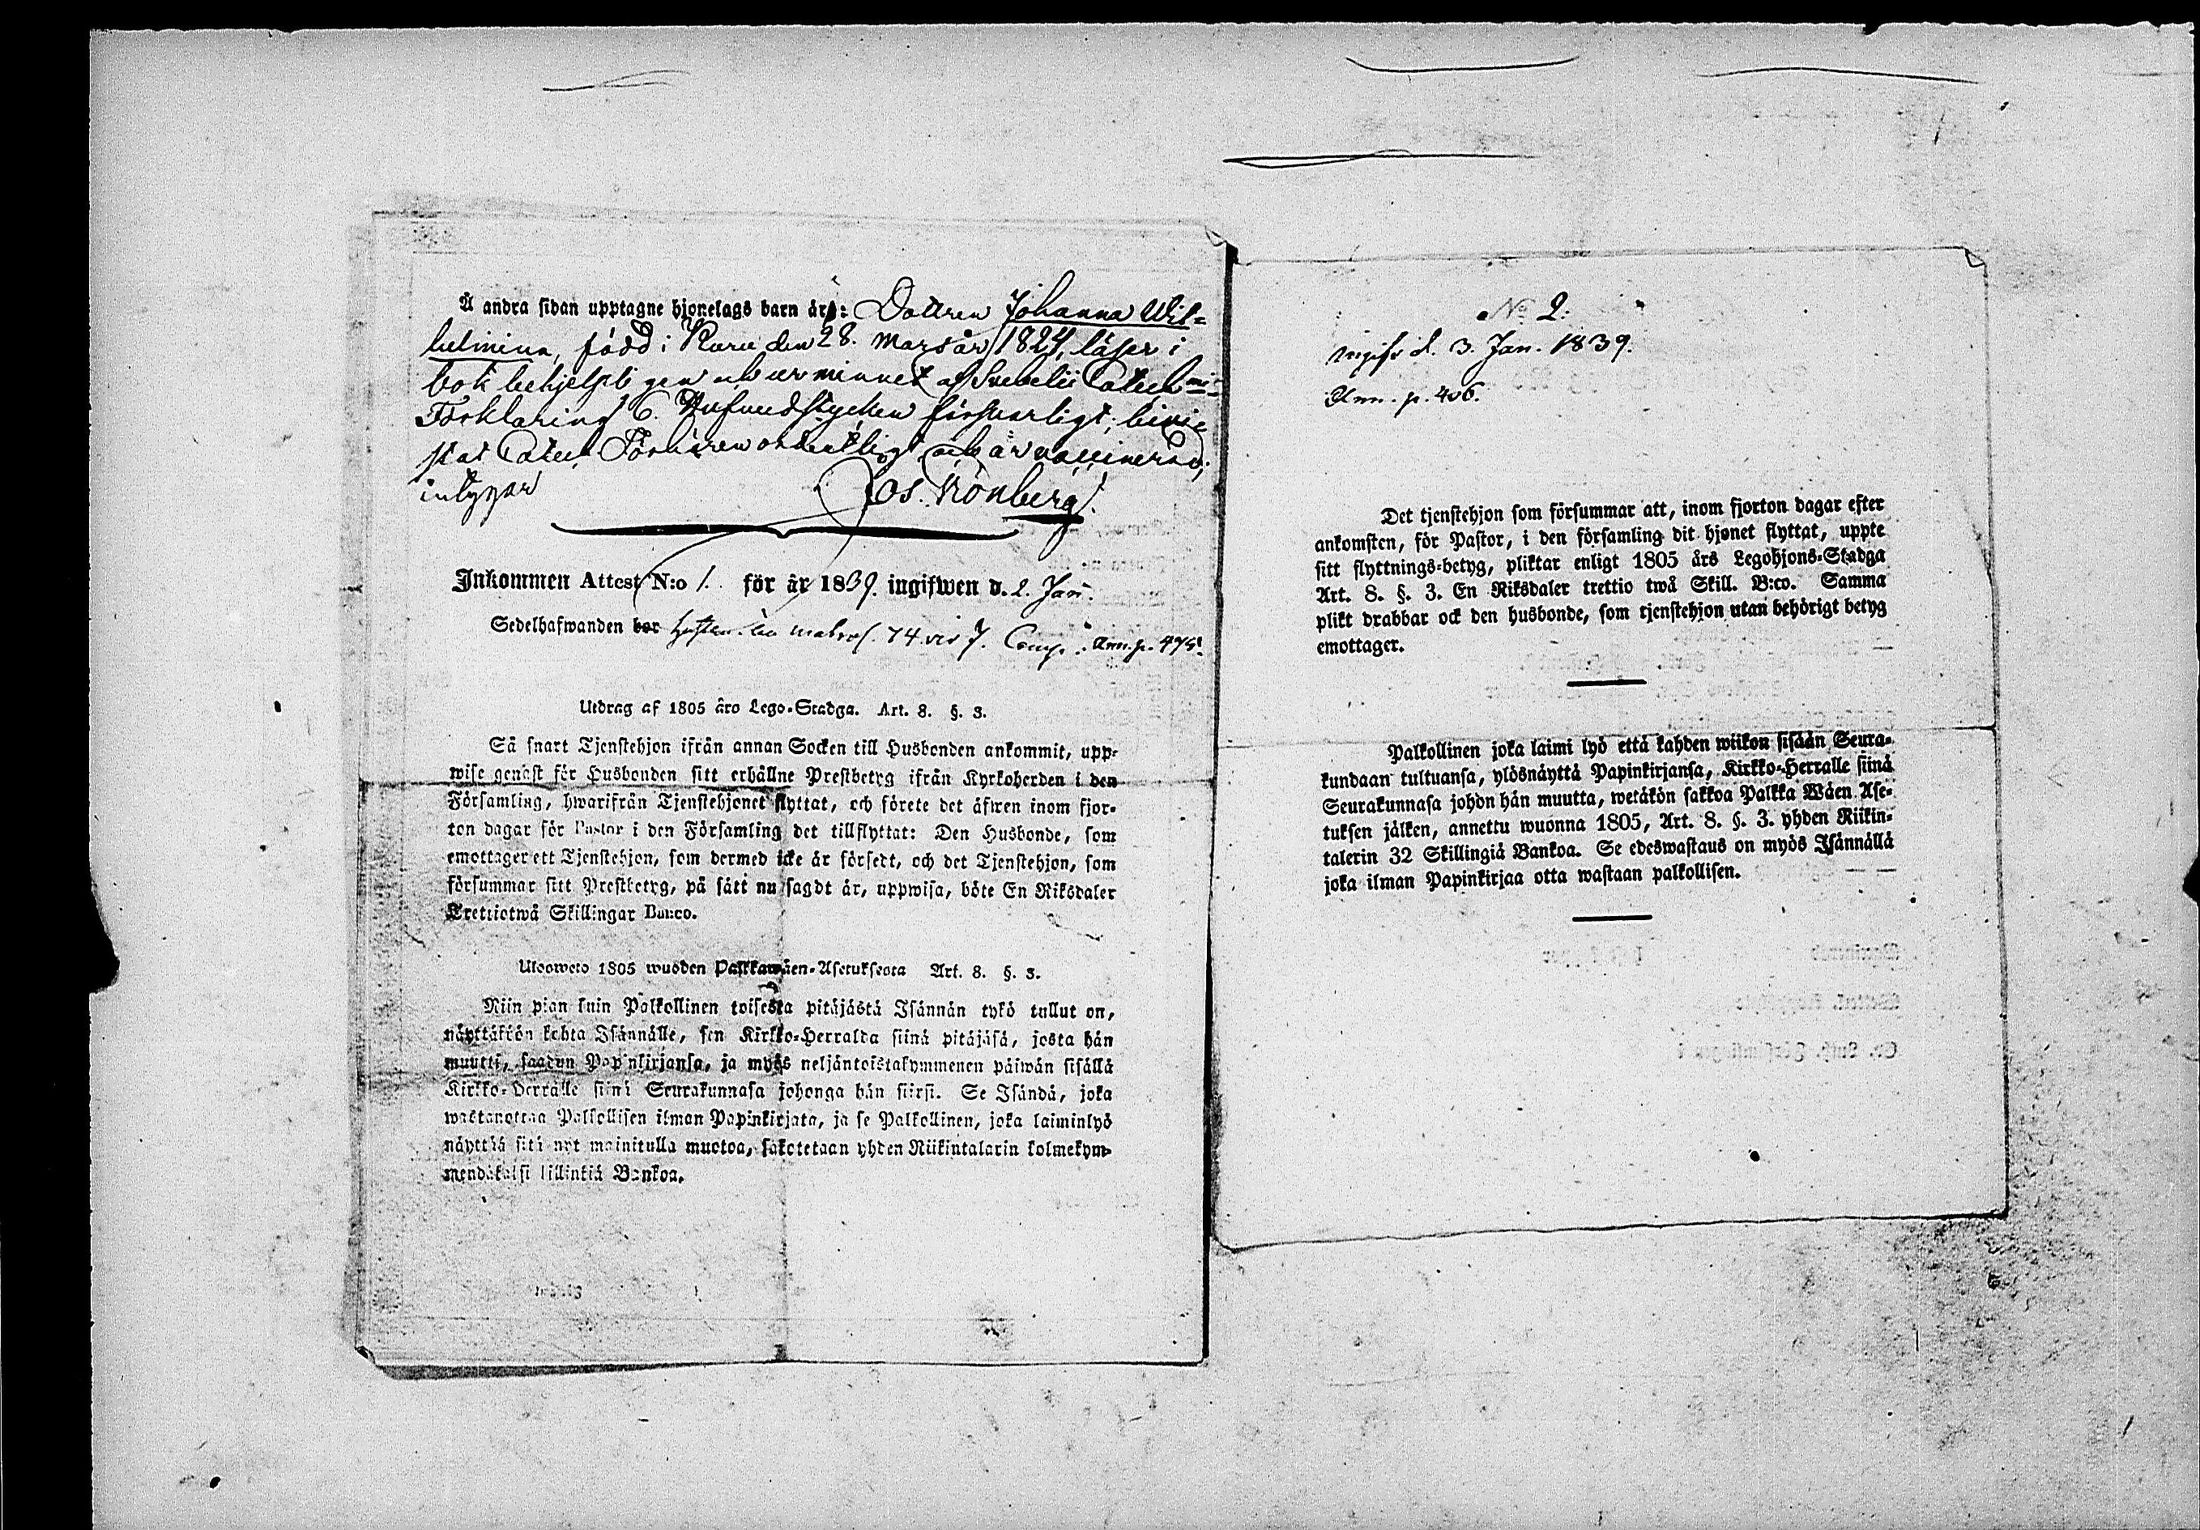 Å andra sidan upptagne hjonelags barn är: Dottren Johanna Wil-
helmina, född i Kuru den 28. Mars år 1824, läser i
bok behjelpligen och ur minnet af Svebelii Catech mi
Förklaring 6. Hufvudstycken försvarligt, bevi-
stat Catech. Förhören ordentligt och är vaccinerad,
intygar Jos. Grönberg.
Inkommen Attest N:o 1. för år 1839. ingifwen d. 2. Jan.
Sedelhafwanden bor matros. 74. vid 7. Comp. Ann. p. 475.
Utdrag af 1805 års Lego-Stadga. Art. 8. §. 3.
Så snart Tjenstehjon ifrån annan Socken till Husbonden ankommit, upp-
wise genast för Husbonden sitt erhållne Prestbetyg ifrån Kyrkoherden i den
Församling, hwarifrån Tjenstehjonet flyttat, och förete det äfwen inom fjor-
ton dagar för Pastor i den Församling det tillflyttat: Den Husbonde, som
emottager ett Tjenstehjon, som dermed icke är försedt, och det Tjenstehjon, som
försummar sitt Prestbetyg, på sätt nu sagdt är, uppwisa, böte En Riksdaler
Trettiotwå Skillingar Banco.
Ulosweto 1805 wuoden Palkkawäen-Asetuksesta Art. 8. §. 3.
Niin pian kuin Palkollinen toisesta pitäjästä Isännän tykö tullut on,
näyttäköön kohta Isännälle, sen Kirkko-Herralda siinä pitäjäsä, josta hän
muutti, saadun Papinkirjansa, ja myös neljäntoistakymmenen päiwän sisällä
Kirkko-Herralle siinä Seurakunnasa johonga hän siirsi. Se Isändä, joka
wastanottaa Palkollisen ilman Papinkirjata, ja se Palkollinen, joka laiminlyö
näyttää sitä nyt mainitulla muotoa, sakotetaan yhden Riikintalarin kolmekym-
mendäkaksi killinkiä Bankoa.
No 2.
ingifv. d. 3. Jan. 1839.
Ann. p. 406.
Det tjenstehjon som försummar att, inom fjorton dagar efter
ankomsten, för Pastor, i den församling dit hjonet flyttat, uppte
sitt flyttnings-betyg, pliktar enligt 1805 års Legohjons-Stadga
Art. 8. §. 3. En Riksdaler trettio twå Skill. B:co. Samma
plikt drabbar ock den husbonde, som tjenstehjon utan behörigt betyg
emottager.
Palkollinen joka laimi lyö että kahden wiikon sisään Seura-
kundaan tultuansa, ylösnäyttä Papinkirjansa, Kirkko-Herralle siinä
Seurakunnasa johdon hän muutta, wetäkön sakkoa Palkka Wäen Ase-
tuksen jälken, annettu wuonna 1805, Art. 8. §. 3. yhden Riikin-
talerin 32 Skillingiä Bankoa. Se edeswastaus on myös Isännällä
joka ilman Papinkirjaa otta wastaan palkollisen.